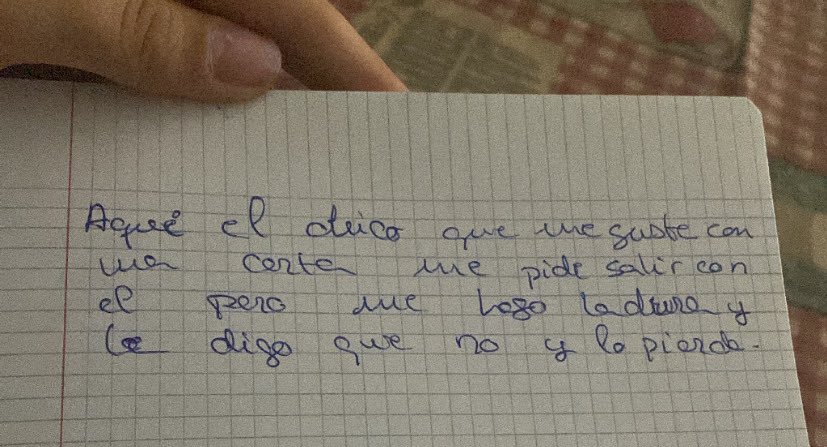 Aqui el chico que me gusta con
una carta me pide salir con
el pero me hago la dura y
le digo que no y lo pierdo.